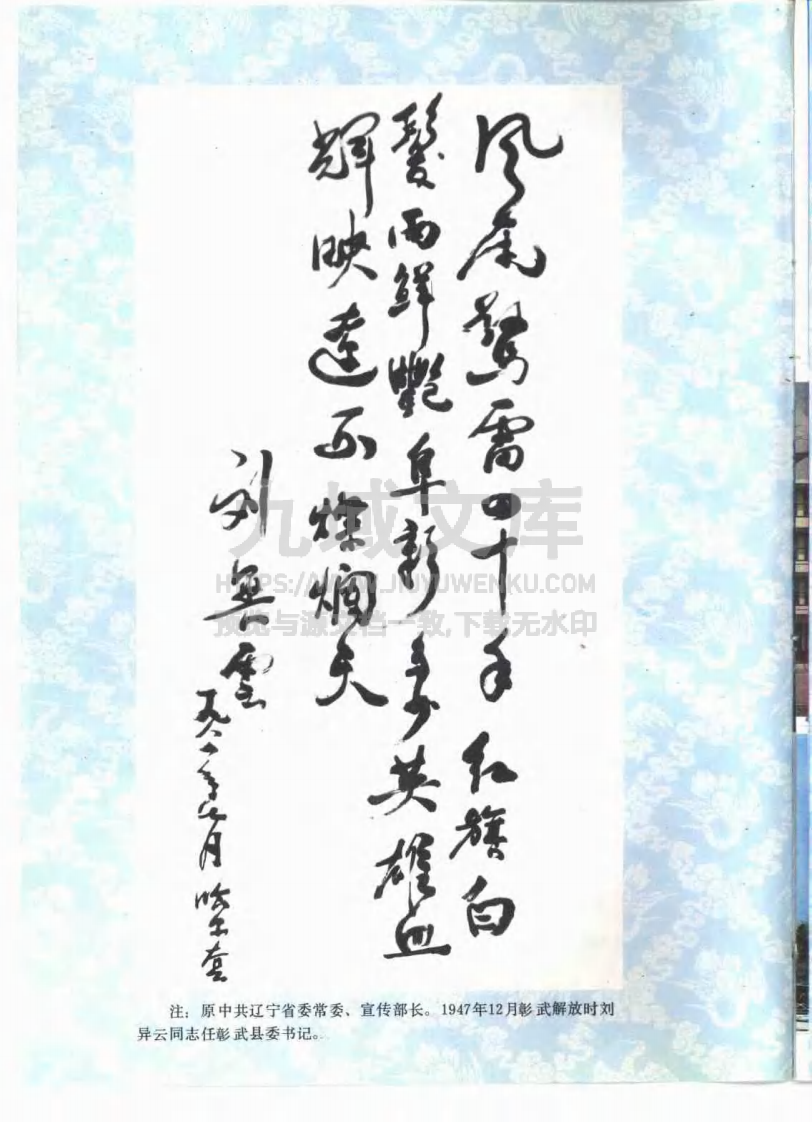 风驚雷四十年红旗白
鬓两鲜艷阜新多少英雄血
輝映遼西燦爛天
刘異雲
一九八一年七月哈尔套
九域文库
HTTPS://WWW.JIUYUWENKU.COM
预览与源文档一致,下载无水印
注：原中共辽宁省委常委、宣传部长。1947年12月彰武解放时刘
异云同志任彰武县委书记。